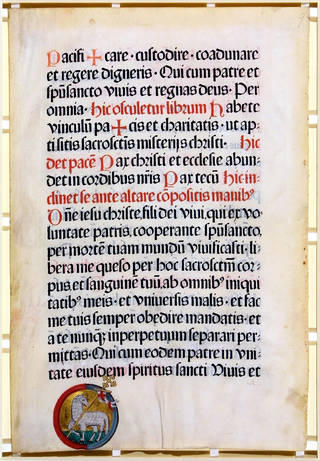 Pacifi ✝ care · custodire · coadunare
et regere digneris · Qui cum patre et
spūsancto viuis et regnas deus · Per
omnia · hic osculetur librum Habete
vinculū pa ✝ cis et charitatis · ut ap-
ti sitis sacrosctis misterijs christi · hic
det pacē Pax christi et ecclesie abun-
det in cordibus nr̄is Pax tecū hic in-
clinet se ante altare cōpositis manibꝰ
Dn̄e iesu christe, fili dei viui, qui ex vo-
luntate patris, cooperante spūsancto,
per mortē tuam mundū viuificasti · li-
bera me queso per hoc sacrosctm̄ cor-
pus, et sanguinē tuū, ab omnibꝰ iniqui
tatibꝰ meis · et vniuersis malis · et fac
me tuis semper obedire mandatis · et
a te nunqꝫ inperpetuum separari per-
mittas · Qui cum eodem patre in vni-
tate eiusdem spiritus sancti Viuis et